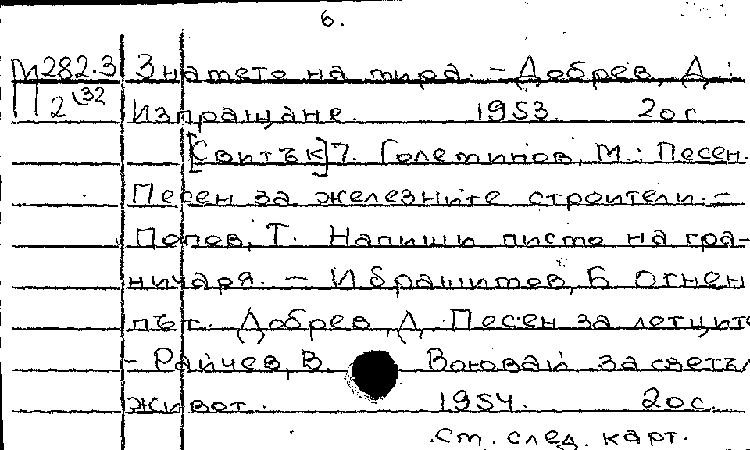 6.
П282.3 Знамето на мира. – Добрев, Д.:
2\32 Изпращане. 1953. 20 с.
[Свитък] 7. Големинов, М.: Песен.
Песен за железните строители. –
Попов, Т. Напиши писмо на гра-
ничаря. – Ибрашимов, Б. Огнен
път. Добрев, Д. Песен за летците
– Райчев, В. Воювай за светъл
живот. 1954. 20 с.
см. след. карт.